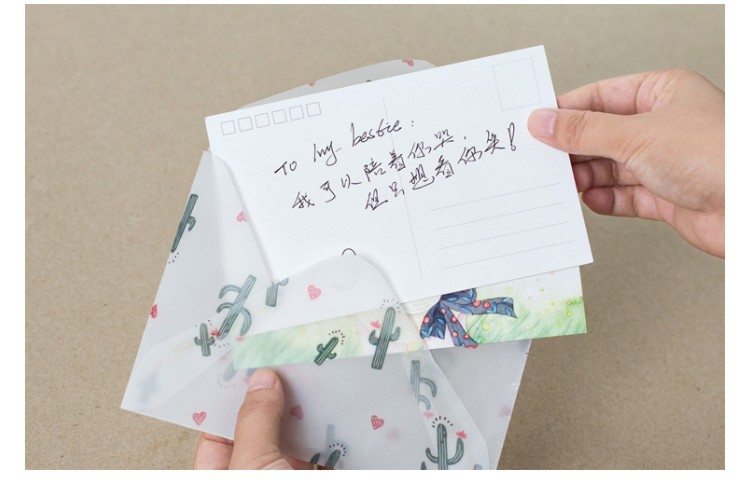 To my bestie:
我可以陪着你哭,
但只想看你笑!